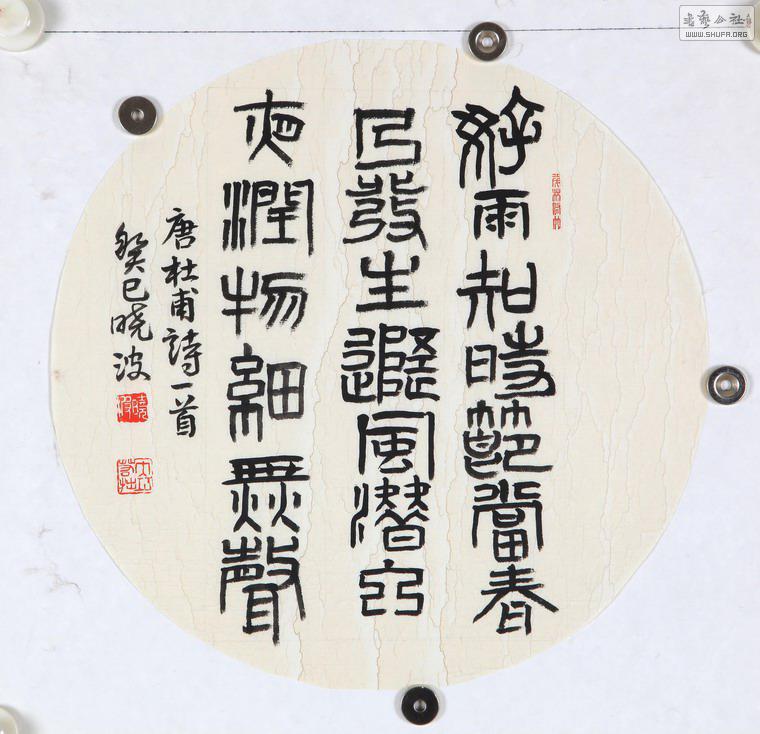 書法公社
WWW.SHUFA.ORG
好雨知時節當春
乃發生隨風潛入
夜潤物細無聲
唐杜甫詩一首
癸巳晓波
曉波
大巧若拙